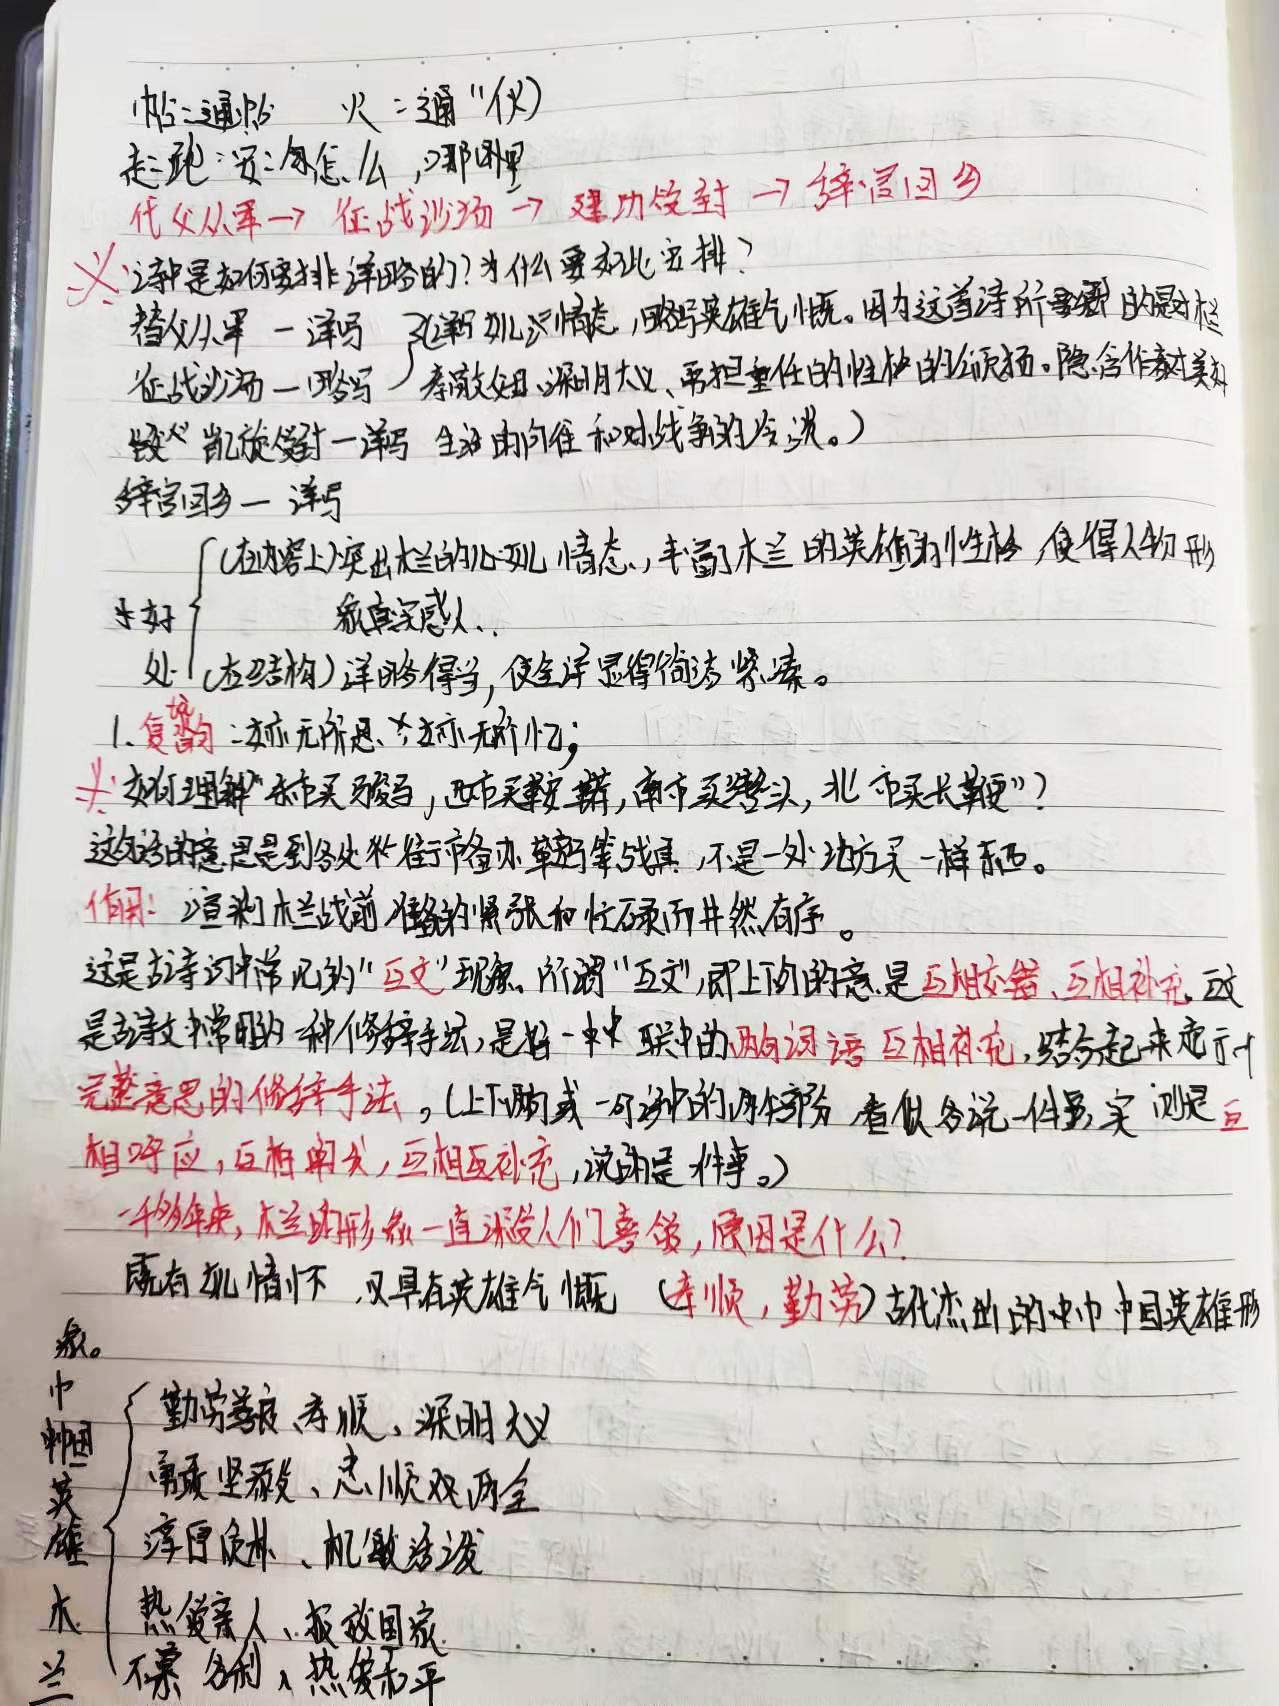 帖:通帖 火:通"伙"
走:跑 安:怎么,哪里
代父从军→征战沙场→建功受封→辞官回乡
诗中是如何安排详略的?为什么要如此安排?
替父从军—详写 (详写女儿情态,略写英雄气慨。因为这首诗所要的是对木兰
征战沙场—略写 孝敬父母、深明大义、勇担重任的性格的颂扬。隐含作者对美好
凯旋受封—详写 生活的向往和对战争的冷淡。)
辞官回乡—详写
(在内容上)突出木兰的儿女儿情态,丰富了木兰的英雄的性格,使得人物形
好 象真实感人.
处 (在结构)详略得当,使全详显得简洁紧凑。
1.复句:女亦无所思、女亦无所忆;
如何理解"东市买骏马,西市买鞍鞯,南市买辔头,北市买长鞭"?
这句话的意思是到各处街市备办等战具,不是一处地方买一样东西。
作用:渲染木兰战前准备的紧张和忙碌而井然有序。
这是古诗词中常见的"互文"现象。所谓"互文",即上下句的意是互相交错、互相补充,互文
是古诗文中常用的一种修辞手法,是将一联中的两句词语互相补充,结合起来表示一个
完整意思的修辞手法。(上下两句或一句话中的两个部分,看似各说一件事,实则是互
相呼应,互相阐发,互相互补充,说的是一件事。)
一千多年来,木兰的形象一直深受人们喜爱,原因是什么?
既有女儿情怀,又具有英雄气慨(孝顺,勤劳)古代杰出的巾帼英雄形
象。
巾 勤劳善良、孝顺、深明大义
帼 勇敢坚毅、忠顺双两全
英 淳厚质朴、机敏活泼
雄
木 热爱亲人、报效国家
兰 不慕名利、热爱和平